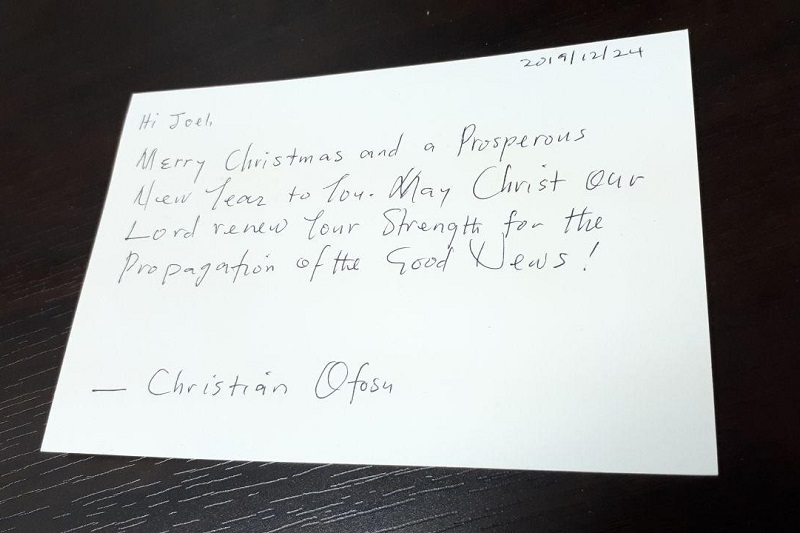 2019/12/24
Hi Joel,
Merry Christmas and a Prosperous
New Year to You. May Christ Our
Lord renew Your Strength for the
Propagation of the Good News!
— Christian Ofosu